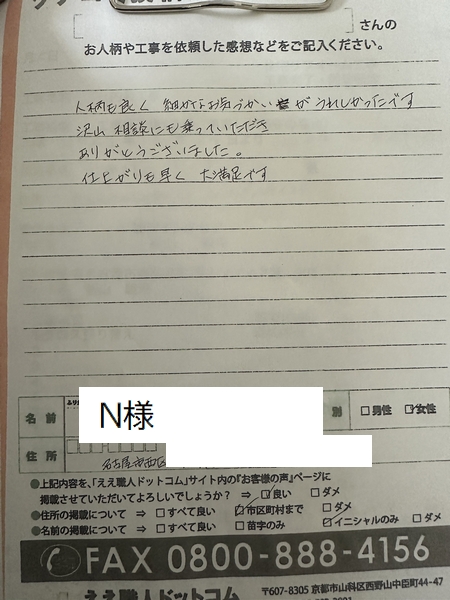 [ ]さんの
お人柄や工事を依頼した感想などをご記入ください。
人柄も良く 細かなお気づかいがうれしかったです
沢山 相談にも乗っていただき
ありがとうございました。
仕上がりも早く 大満足です
名前 N様 別 □男性 ☑女性
住所 名古屋市西区
●上記内容を、「ええ職人ドットコム」サイト内の『お客様の声』ページに
掲載させていただいてよろしいでしょうか? ⇒ ☑良い □ダメ
●住所の掲載について ⇒ □すべて良い ☑市区町村まで □ダメ
●名前の掲載について ⇒ □すべて良い □苗字のみ ☑イニシャルのみ □ダメ
FAX 0800-888-4156
ええ職人ドットコム 〒607-8305 京都市山科区西野山中臣町44-47